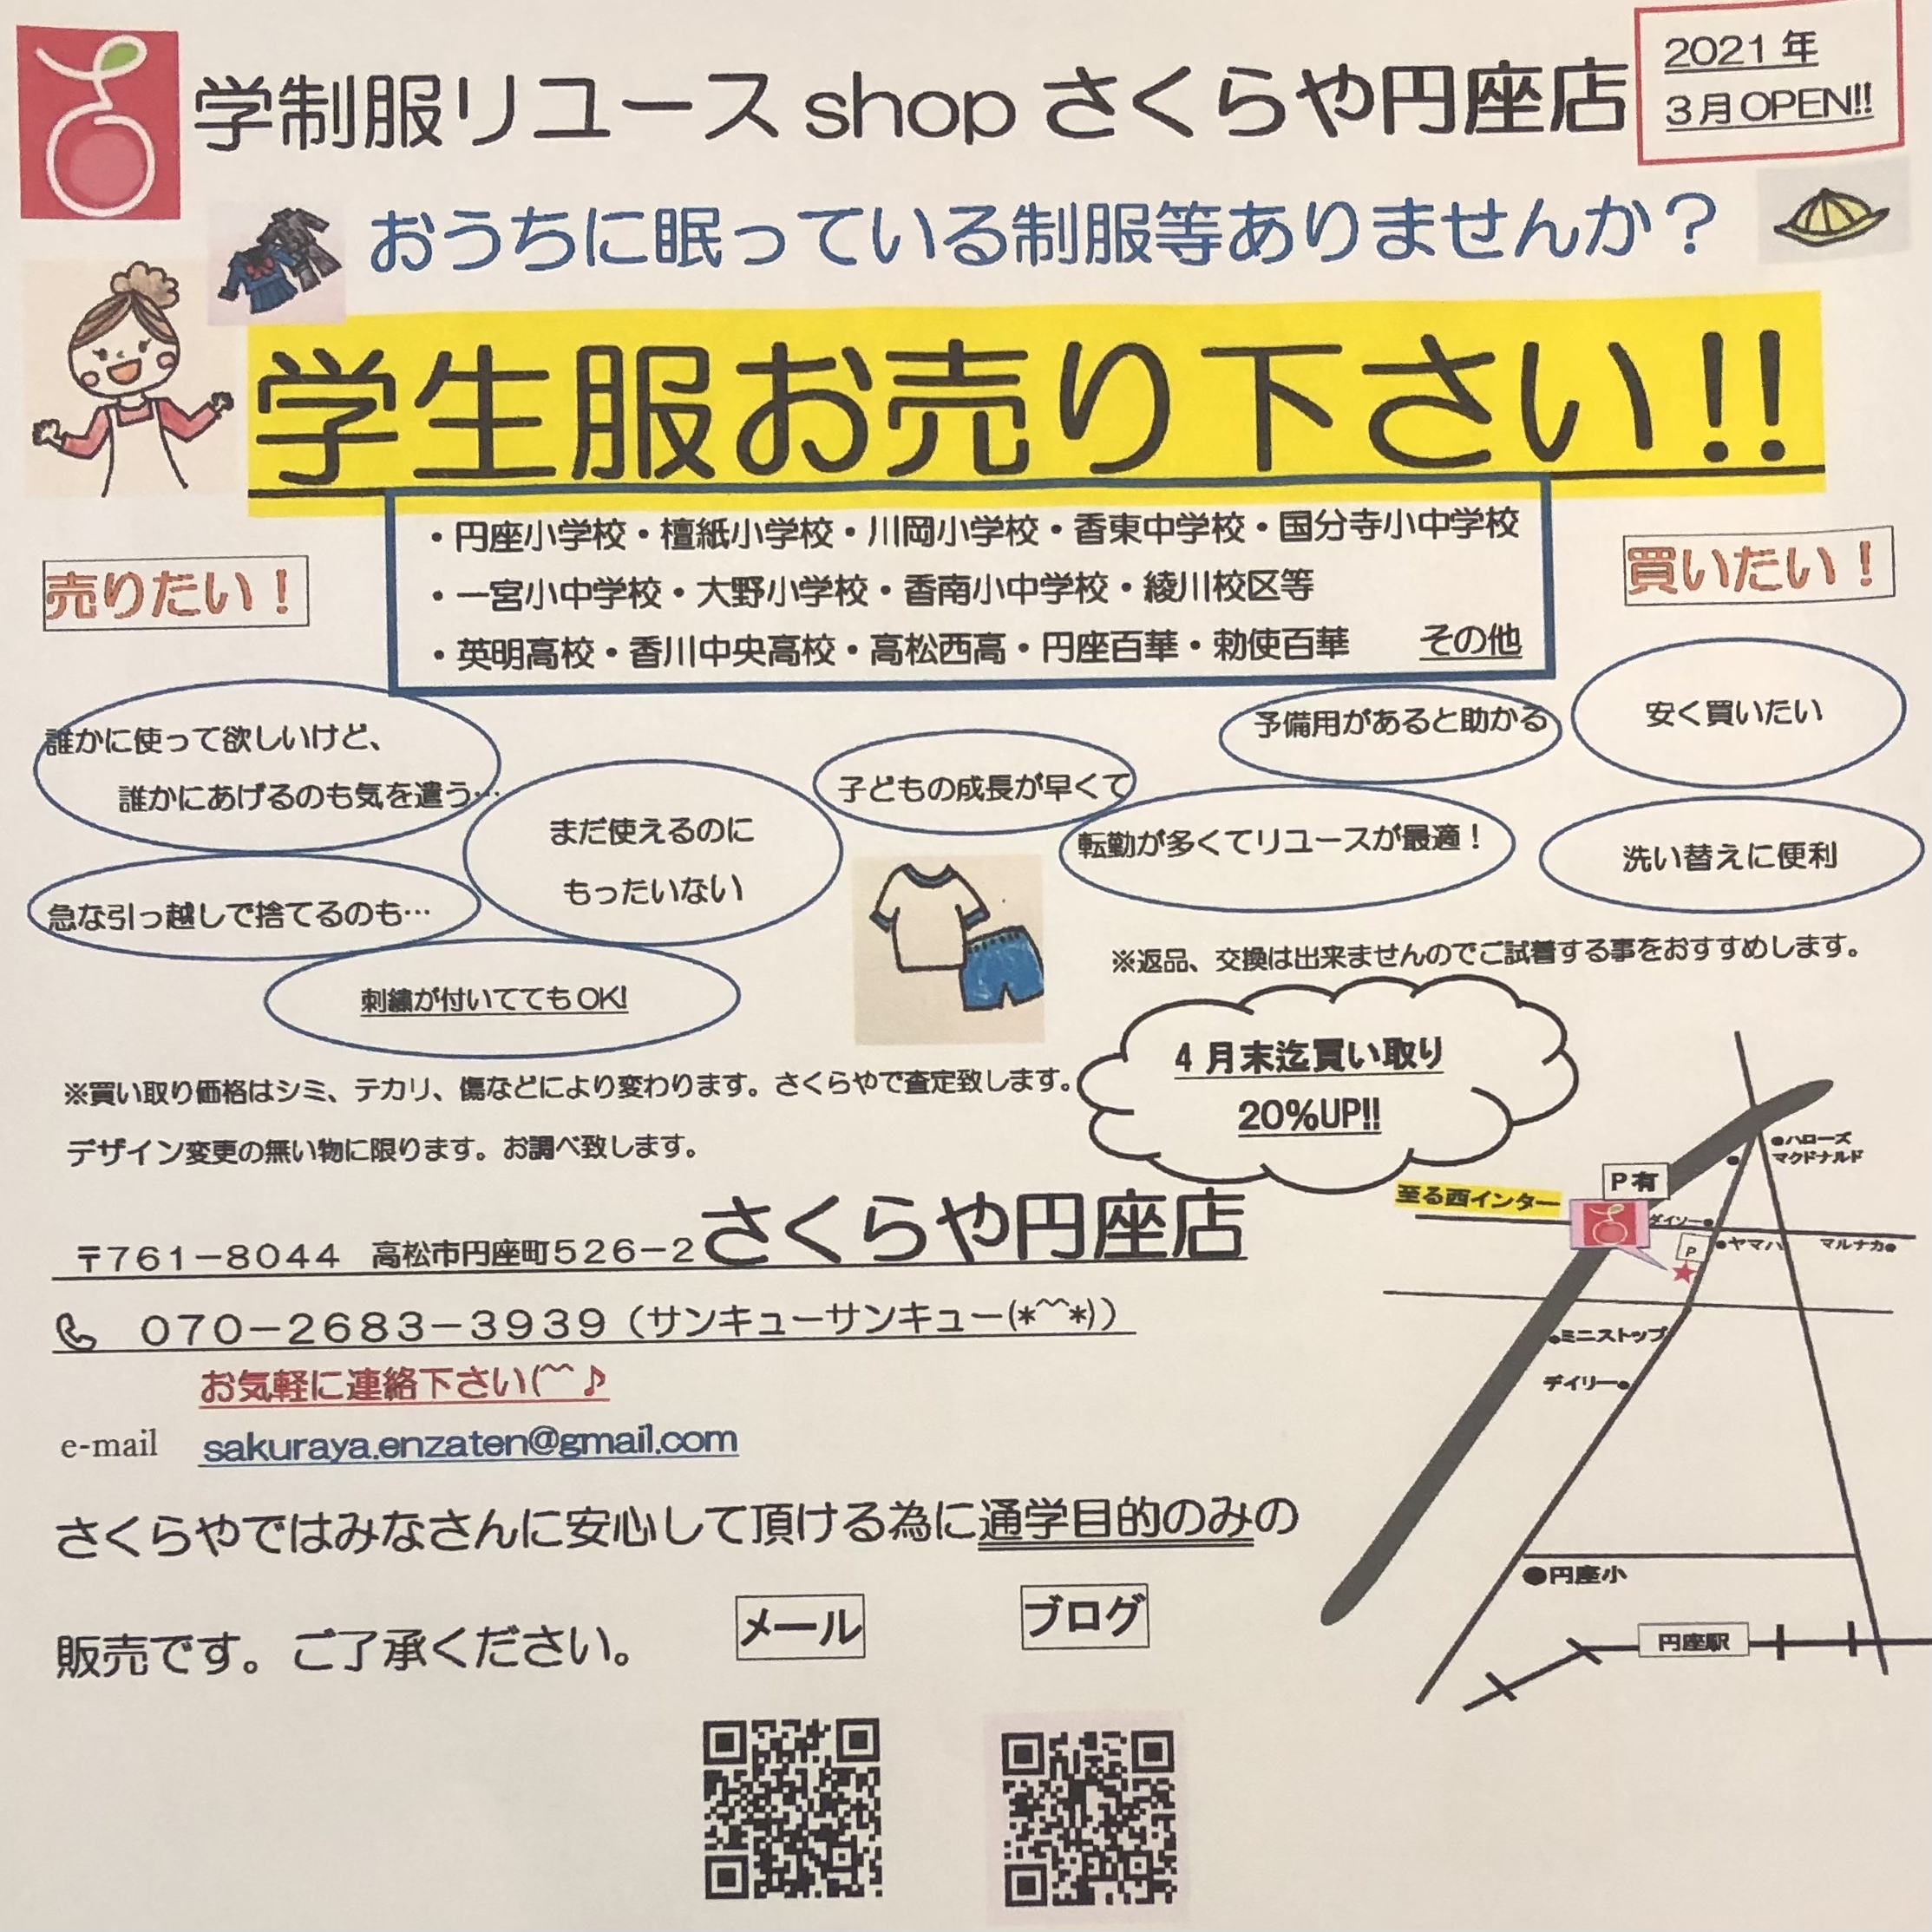 学制服リユース shop さくらや円座店
2021 年
3月 OPEN!!
おうちに眠っている制服等ありませんか？
学生服お売り下さい！！
・円座小学校・檀紙小学校・川岡小学校・香東中学校・国分寺小中学校
・一宮小中学校・大野小学校・香南小中学校・綾川校区等
・英明高校・香川中央高校・高松西高・円座百華・勅使百華　その他
売りたい！
買いたい！
誰かに使って欲しいけど、
誰かにあげるのも気を遣う…
まだ使えるのに
もったいない
急な引っ越しで捨てるのも…
刺繍が付いててもOK!
子どもの成長が早くて
予備用があると助かる
安く買いたい
転勤が多くてリユースが最適！
洗い替えに便利
※返品、交換は出来ませんのでご試着する事をおすすめします。
4 月末迄買い取り
20%UP!!
※買い取り価格はシミ、テカリ、傷などにより変わります。さくらやで査定致します。
デザイン変更の無い物に限ります。お調べ致します。
〒761－8044　高松市円座町526－2 さくらや円座店
070－2683－3939（サンキューサンキュー(*^^*)）
お気軽に連絡下さい(^^♪
e-mail　sakuraya.enzaten@gmail.com
さくらやではみなさんに安心して頂ける為に通学目的のみの
販売です。ご了承ください。
メール
ブログ
ハローズ
マクドナルド
P有
至る西インター
ダイソー
P
ヤマハ
マルナカ
ミニストップ
デイリー
円座小
円座駅